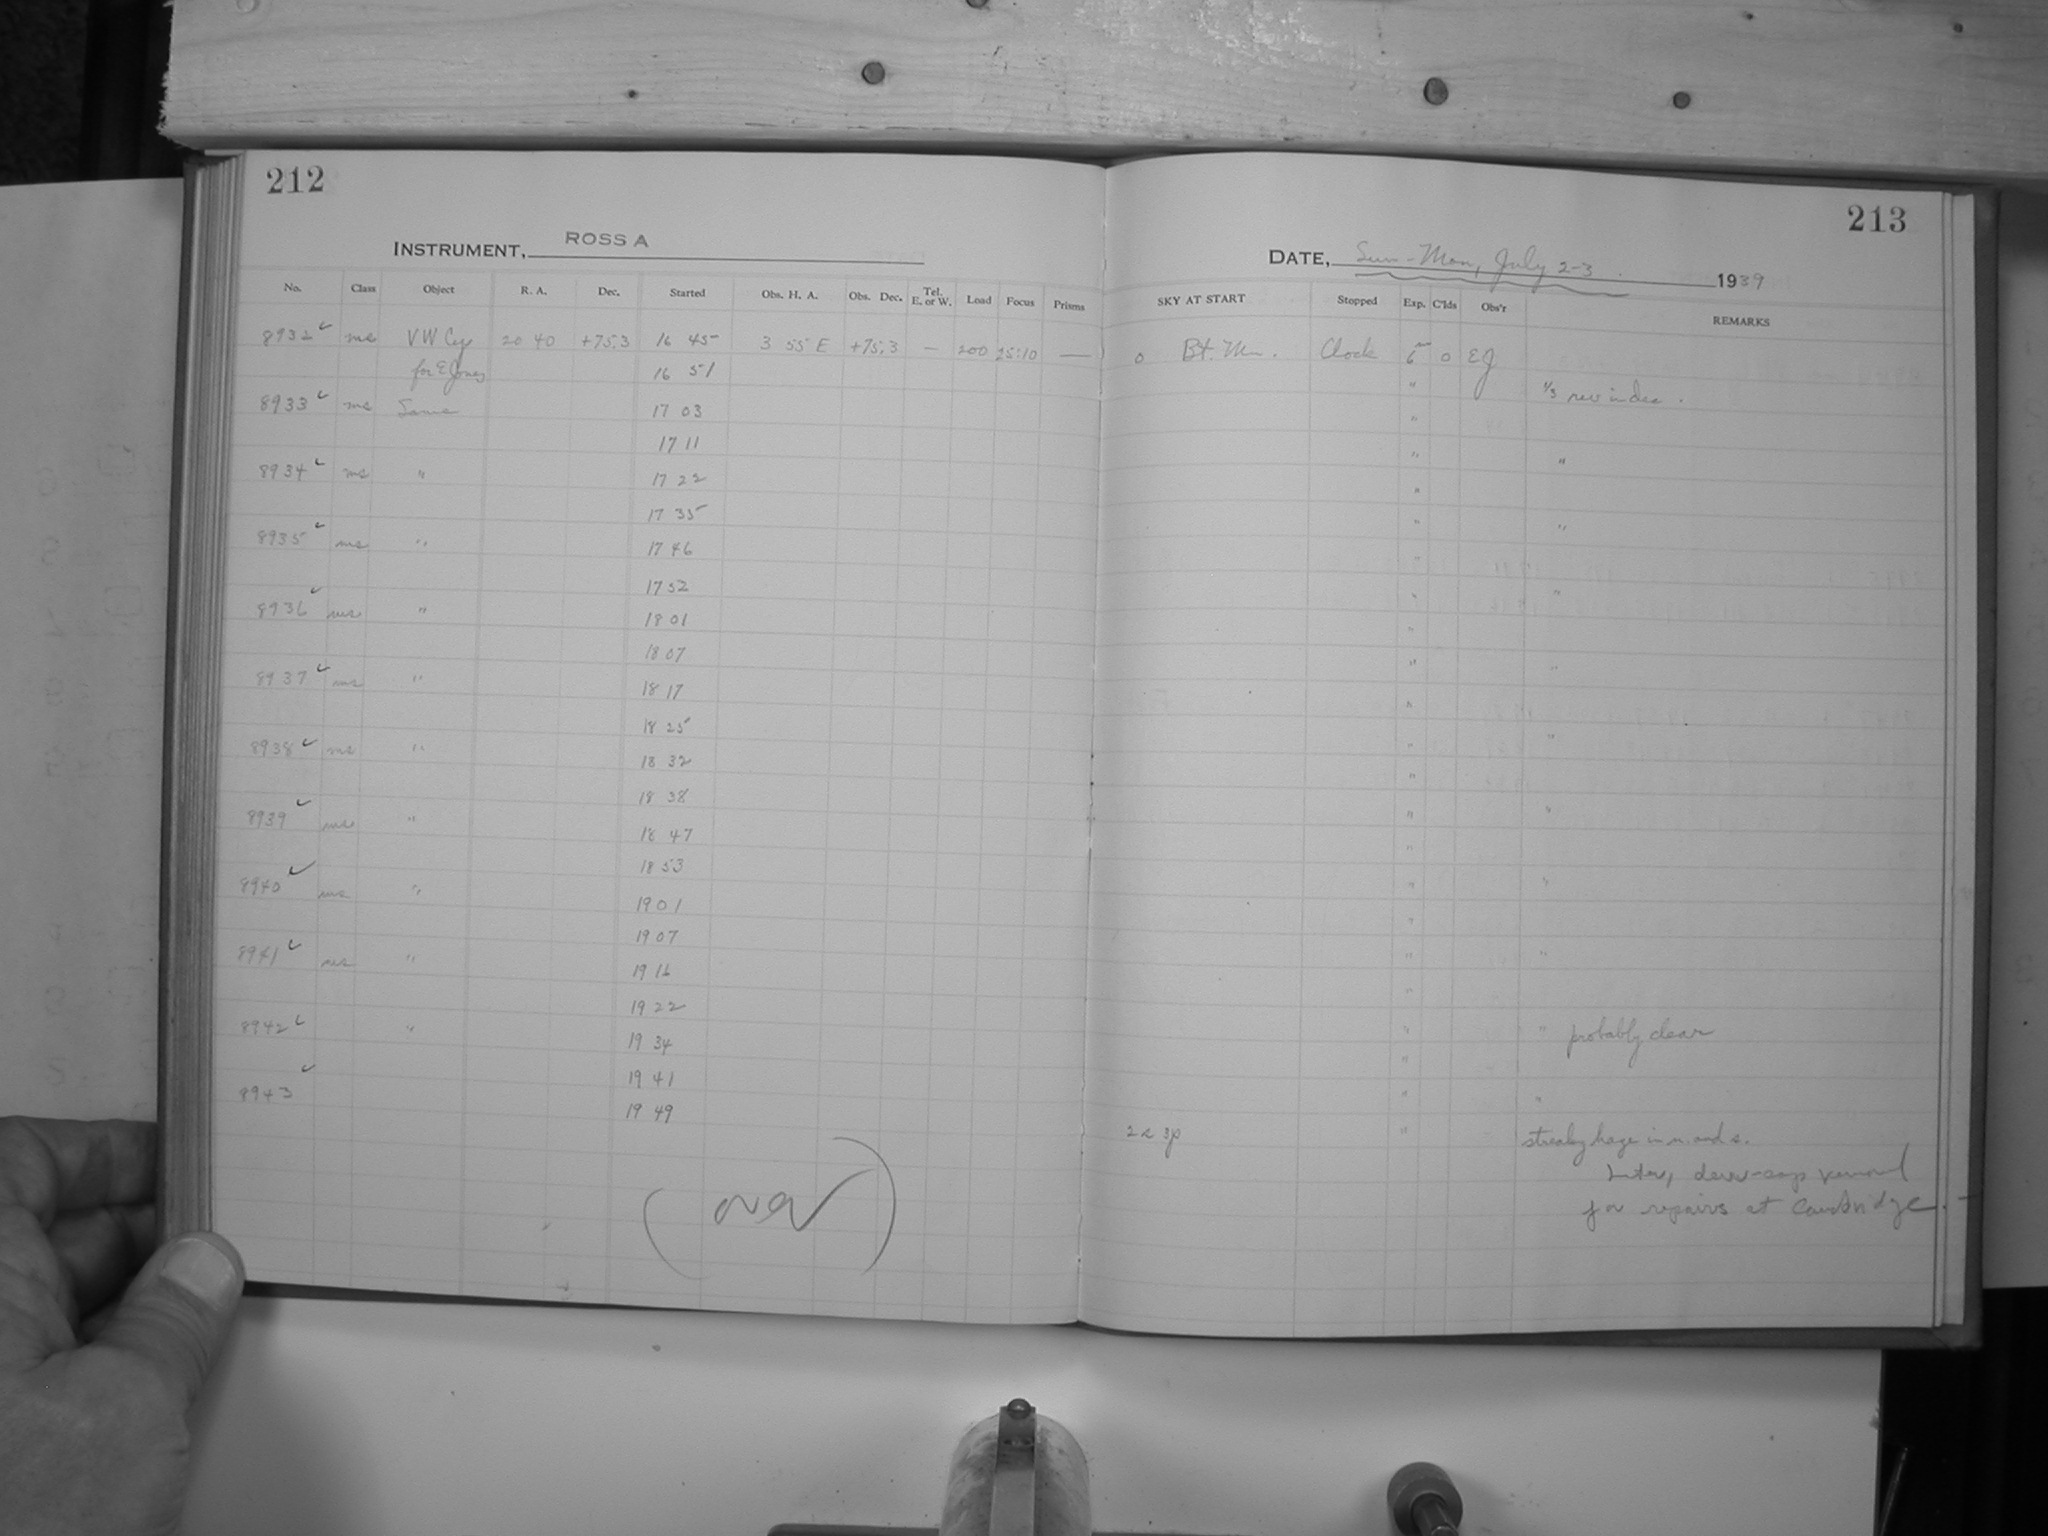 212
INSTRUMENT, ROSS A
No. Class Object R. A. Dec. Started Obs. H. A. Obs. Dec. Tel. E. or W. Load Focus Prisms
8932 ✓ ms VW Cep 20 40 +75.3 16 45 3 55 E +75.3 — 200 25:10 —
for E Jones 16 51
8933 ✓ ms Same 17 03
17 11
8934 ✓ ms " 17 22
17 35
8935 ✓ ms " 17 46
17 52
8936 ✓ ms " 18 01
18 07
8937 ✓ ms " 18 17
18 25
8938 ✓ ms " 18 32
18 38
8939 ✓ ms " 18 47
18 53
8940 ✓ ms " 19 01
19 07
8941 ✓ ms " 19 16
19 22
8942 ✓ " 19 34
19 41
8943 ✓ 19 49
(over)
213
DATE, Sun-Mon, July 2-3 1939
SKY AT START Stopped Exp. C'lds Obs'r REMARKS
0 Bt. Mn. Clock 6m 0 EJ
" 1/3 rev in dec.
"
" "
"
" "
"
" "
"
" "
"
" "
"
" "
"
" "
"
" "
"
" " probably clear
"
" "
2 < 3p " streaky haze in n. and s.
Later, dew-cap removed
for repairs at Cambridge.